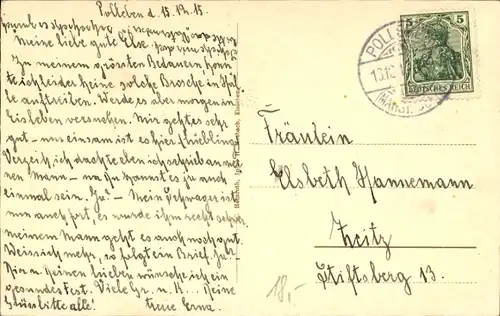 Polleben d. 15.
Meine liebe gute Else.
Zu meinem grössten Bedauern, konn-
te ich leider keine solche Brosche in
auftreiben. Werde es aber morgen in
Eisleben versuchen. Mir geht es sehr
gut – nur einsam ist es hier fürchterlich
Verzeih ich dachte eben ich schreib an mei-
nen Mann – na Du kannst es ja auch
einmal sein. Ja? – Mein Schwager ist
nun auch fort, es wurde ihm recht schwer
meinem Mann geht es auch noch gut.
Weiss ich mehr, so folgt ein Brief.
Dir u. Deinen lieben wünsche ich ein
gesundes Fest. Viele Gr. u. K... Deine
Grüss bitte alle! treue Erna.
Fräulein
Elsbeth Hannemann
Zeitz
Stiftsberg 13.
18,-
5 5
DEUTSCHES REICH